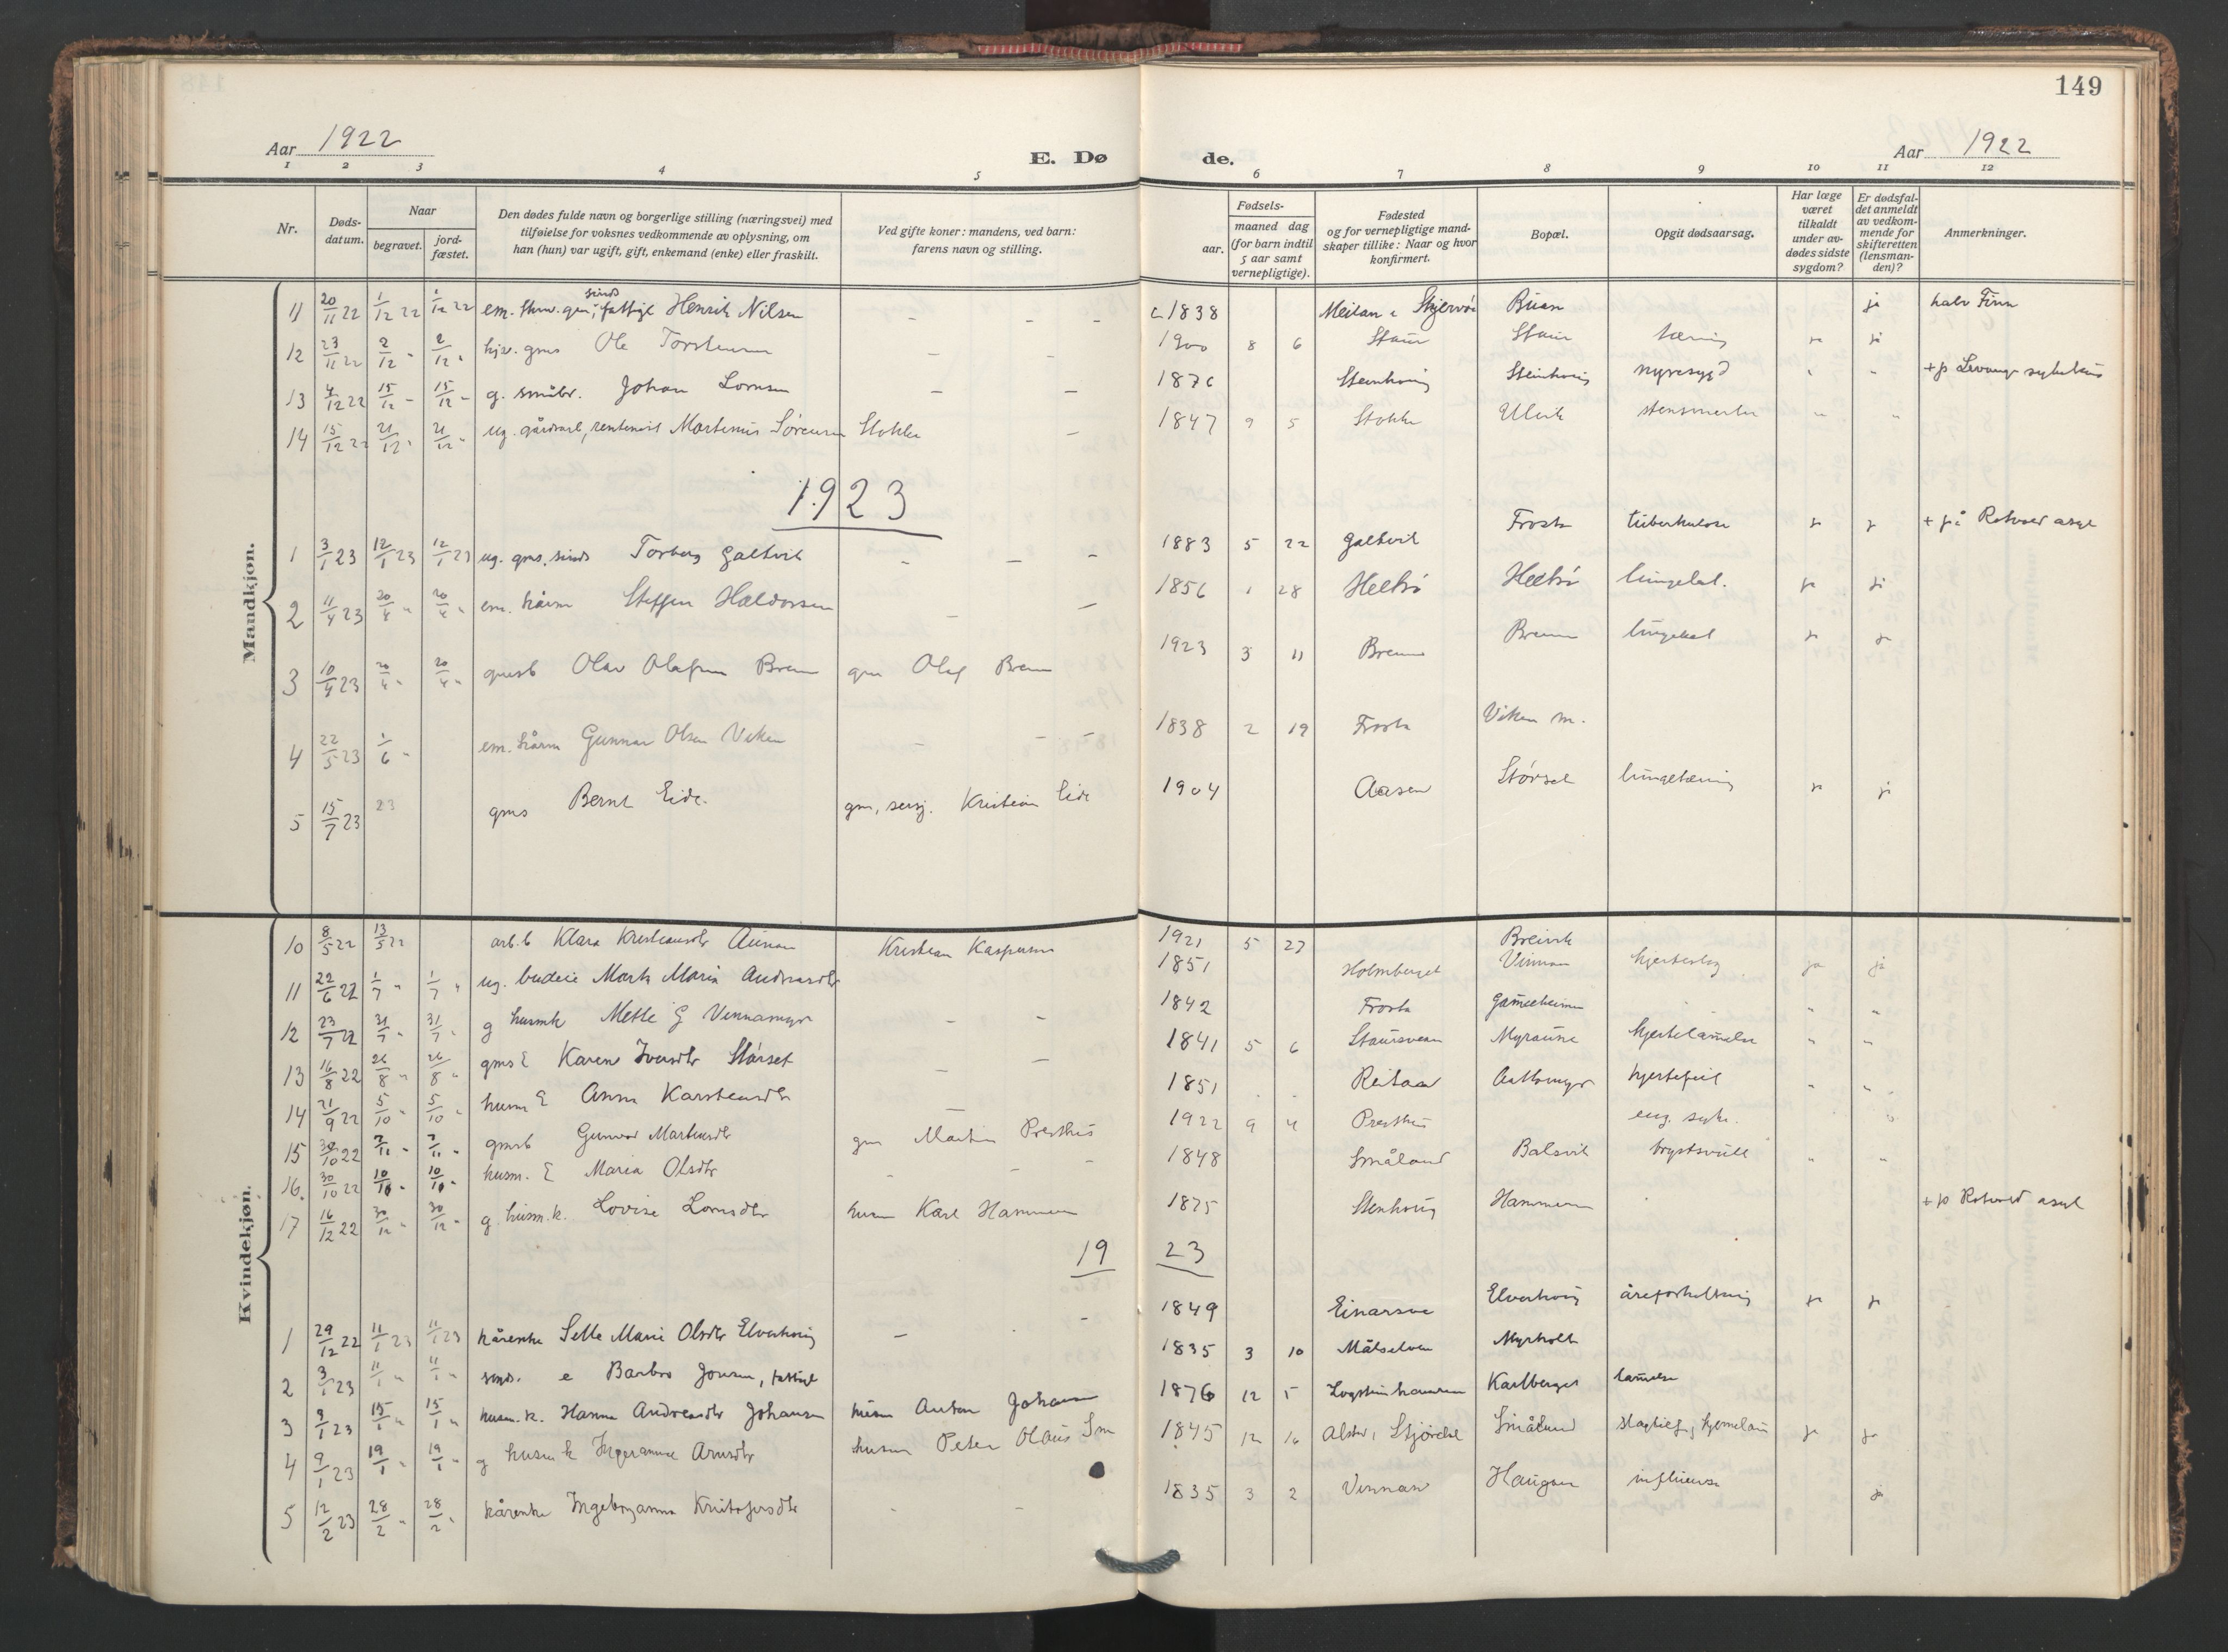 149
Aar 1922
E. Dø de.
Aar 1922
1 2 3 4 5 6 7 8 9 10 11 12
Nr.
Døds-
datum.
Naar
begravet.
jord-
fæstet.
Den dødes fulde navn og borgerlige stilling (næringsvei) med
tilføielse for voksnes vedkommende av oplysning, om
han (hun) var ugift, gift, enkemand (enke) eller fraskilt.
Ved gifte koner: mandens, ved barn:
farens navn og stilling.
Fødsels-
aar.
maaned dag
(for barn indtil
5 aar samt
vernepligtige).
Fødested
og for vernepligtige mand-
skaper tillike: Naar og hvor
konfirmert.
Bopæl.
Opgit dødsaarsag.
Har læge
været
tilkaldt
under av-
dødes sidste
sygdom?
Er dødsfal-
det anmeldt
av vedkom-
mende for
skifteretten
(lensman-
den)?
Anmerkninger.
Mandkjøn.
11 20/11 22 1/12 22 1/12 22 em. sinds fattigl Henrik Nilsen – – – c 1838 Meilan i Skjervø Buan ja halv Finn
12 23/11 22 2/12 - 2/12 - gms Ole Torstensen – – 1900 8 6 Staur Staur tæring ja ja
13 4/12 22 15/12 - 15/12 - g. småbr. Johan Lornsen – – 1876 Steinhoug Steinhoug nyresygd " " + p Levanger sykehus
14 15/12 22 21/12 - 21/12 - ug. gårdarb, Martinus Sørensen Stokke – 1847 9 5 Stokke Ulvik " "
1923
1 3/1 23 12/1 23 12/1 23 ug. gms, sinds Torberg Galtvik – – – 1883 5 22 Galtvik Frosta tuberkulose ja ja + på Rotvold asyl
2 11/4 23 20/4 " 20/4 " em. kårm Steffen Haldorsen – – 1856 1 28 Helbø Helbø lungebet. ja ja
3 10/4 23 20/4 " 20/4 " gmsb Olav Olafsen Brenn gm Olaf Brenn 1923 3 11 Brenne Brenne lungebet ja ja
4 22/5 23 1/6 - em. kårm Gunnar Olsen Viken – – – 1838 2 19 Frosta Viken m.
5 15/7 23 23 gms Bernt Eide. gm, sersj. Kristian Eide 1904 Aasen Størset lungetæring ja ja
Kvindekjøn.
10 8/5 22 13/5 22 arb.b Klara Kristiansdtr Aunan Kristian Kaspersen 1921 5 27 Breivik
11 22/6 22 1/7 " 1/7 " ug. budeie Marta Maria Andreasdtr 1851 Holmberget Vinnan hjerteslag ja ja
12 23/7 22 31/7 - 31/7 - g husmk Mette G Vennamyr – – 1842 Frosta Gamleheimen " "
13 16/8 22 26/8 " 26/8 " gms E Karen Iversdtr Størset – – 1841 5 6 Staursvean Myraune hjertelamelse " "
14 21/9 22 5/10 - 5/10 - husm E Anna Karstensdtr – 1851 Reitan hjertefeil " "
15 30/10 22 7/11 - 7/11 - gmsb Gunvor Martinsdtr gm Martin Presthus 1922 9 4 Presthus eng. syke.
16. 30/10 22 10/10 - 10/10 - husm. E Maria Olsdtr – – – 1848 Småland Balsvik brystsvulst " "
17 16/12 22 30/12 " 30/12 " g. husm.k. Lovise Lornsdtr husm Karl Hammern 1875 Stenhoug Hammern + p Rotvold asyl
19 23
1 29/12 22 11/1 23 11/1 23 kårenke Sille Marie Olsdtr Elverhøig – – 1849 Einarsve Elverhøig åreforkalkning ja ja
2 3/1 23 11/1 " 11/1 " e Barbro Jonsen, fattigl 1835 3 10 Målselven Myrholt
3 9/1 23 15/1 " 15/1 " husm. k. Hanna Andreasdtr Johansen husm Anton Johansen 1876 12 5 Karlberget lamelse
4 9/1 23 19/1 - 19/1 - g husm k Ingeranna Arnsdtr husm Peter Olaus Sm 1845 12 16 Stjørdal Småland ja ja
5 12/2 23 28/2 " 28/2 " kårenke Ingeborganna Kristofersdtr – – 1835 3 2 Vinnan Haugan influensa ja